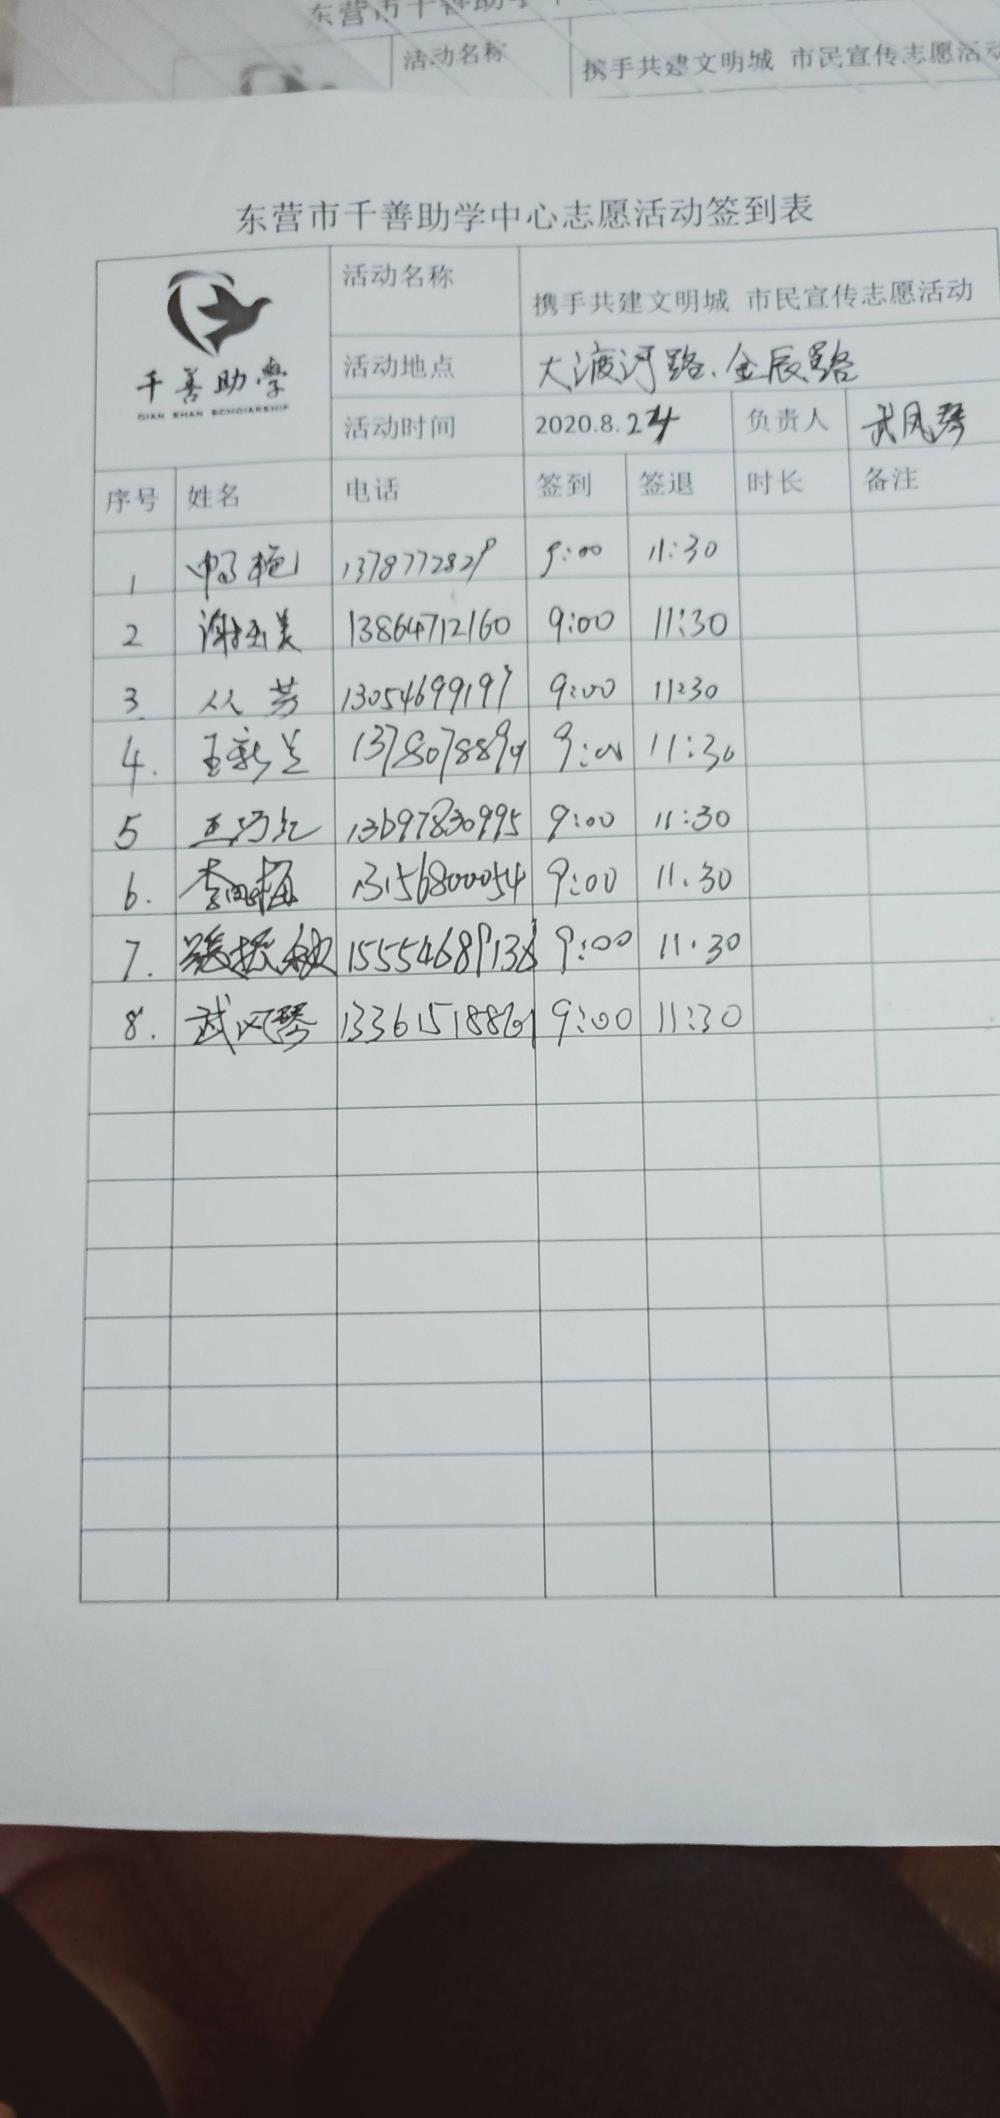 东营市千善助学
活动名称
携手共建文明城 市民宣传志愿活动
东营市千善助学中心志愿活动签到表
千善助学
QIAN SHAN SCHOLARSHIP
活动名称 携手共建文明城 市民宣传志愿活动
活动地点 大渡河路、金辰路
活动时间 2020.8.24 负责人 武凤琴
序号 姓名 电话 签到 签退 时长 备注
1 1378772829 9:00 11:30
2 谢玉美 13864712160 9:00 11:30
3 从芳 13054699197 9:00 11:30
4. 王新兰 9:00 11:30
5 王巧红 13697830995 9:00 11:30
6. 李 梅 13156800054 9:00 11.30
7. 张振秋 15554689138 9:00 11.30
8. 武凤琴 13361518861 9:00 11:30